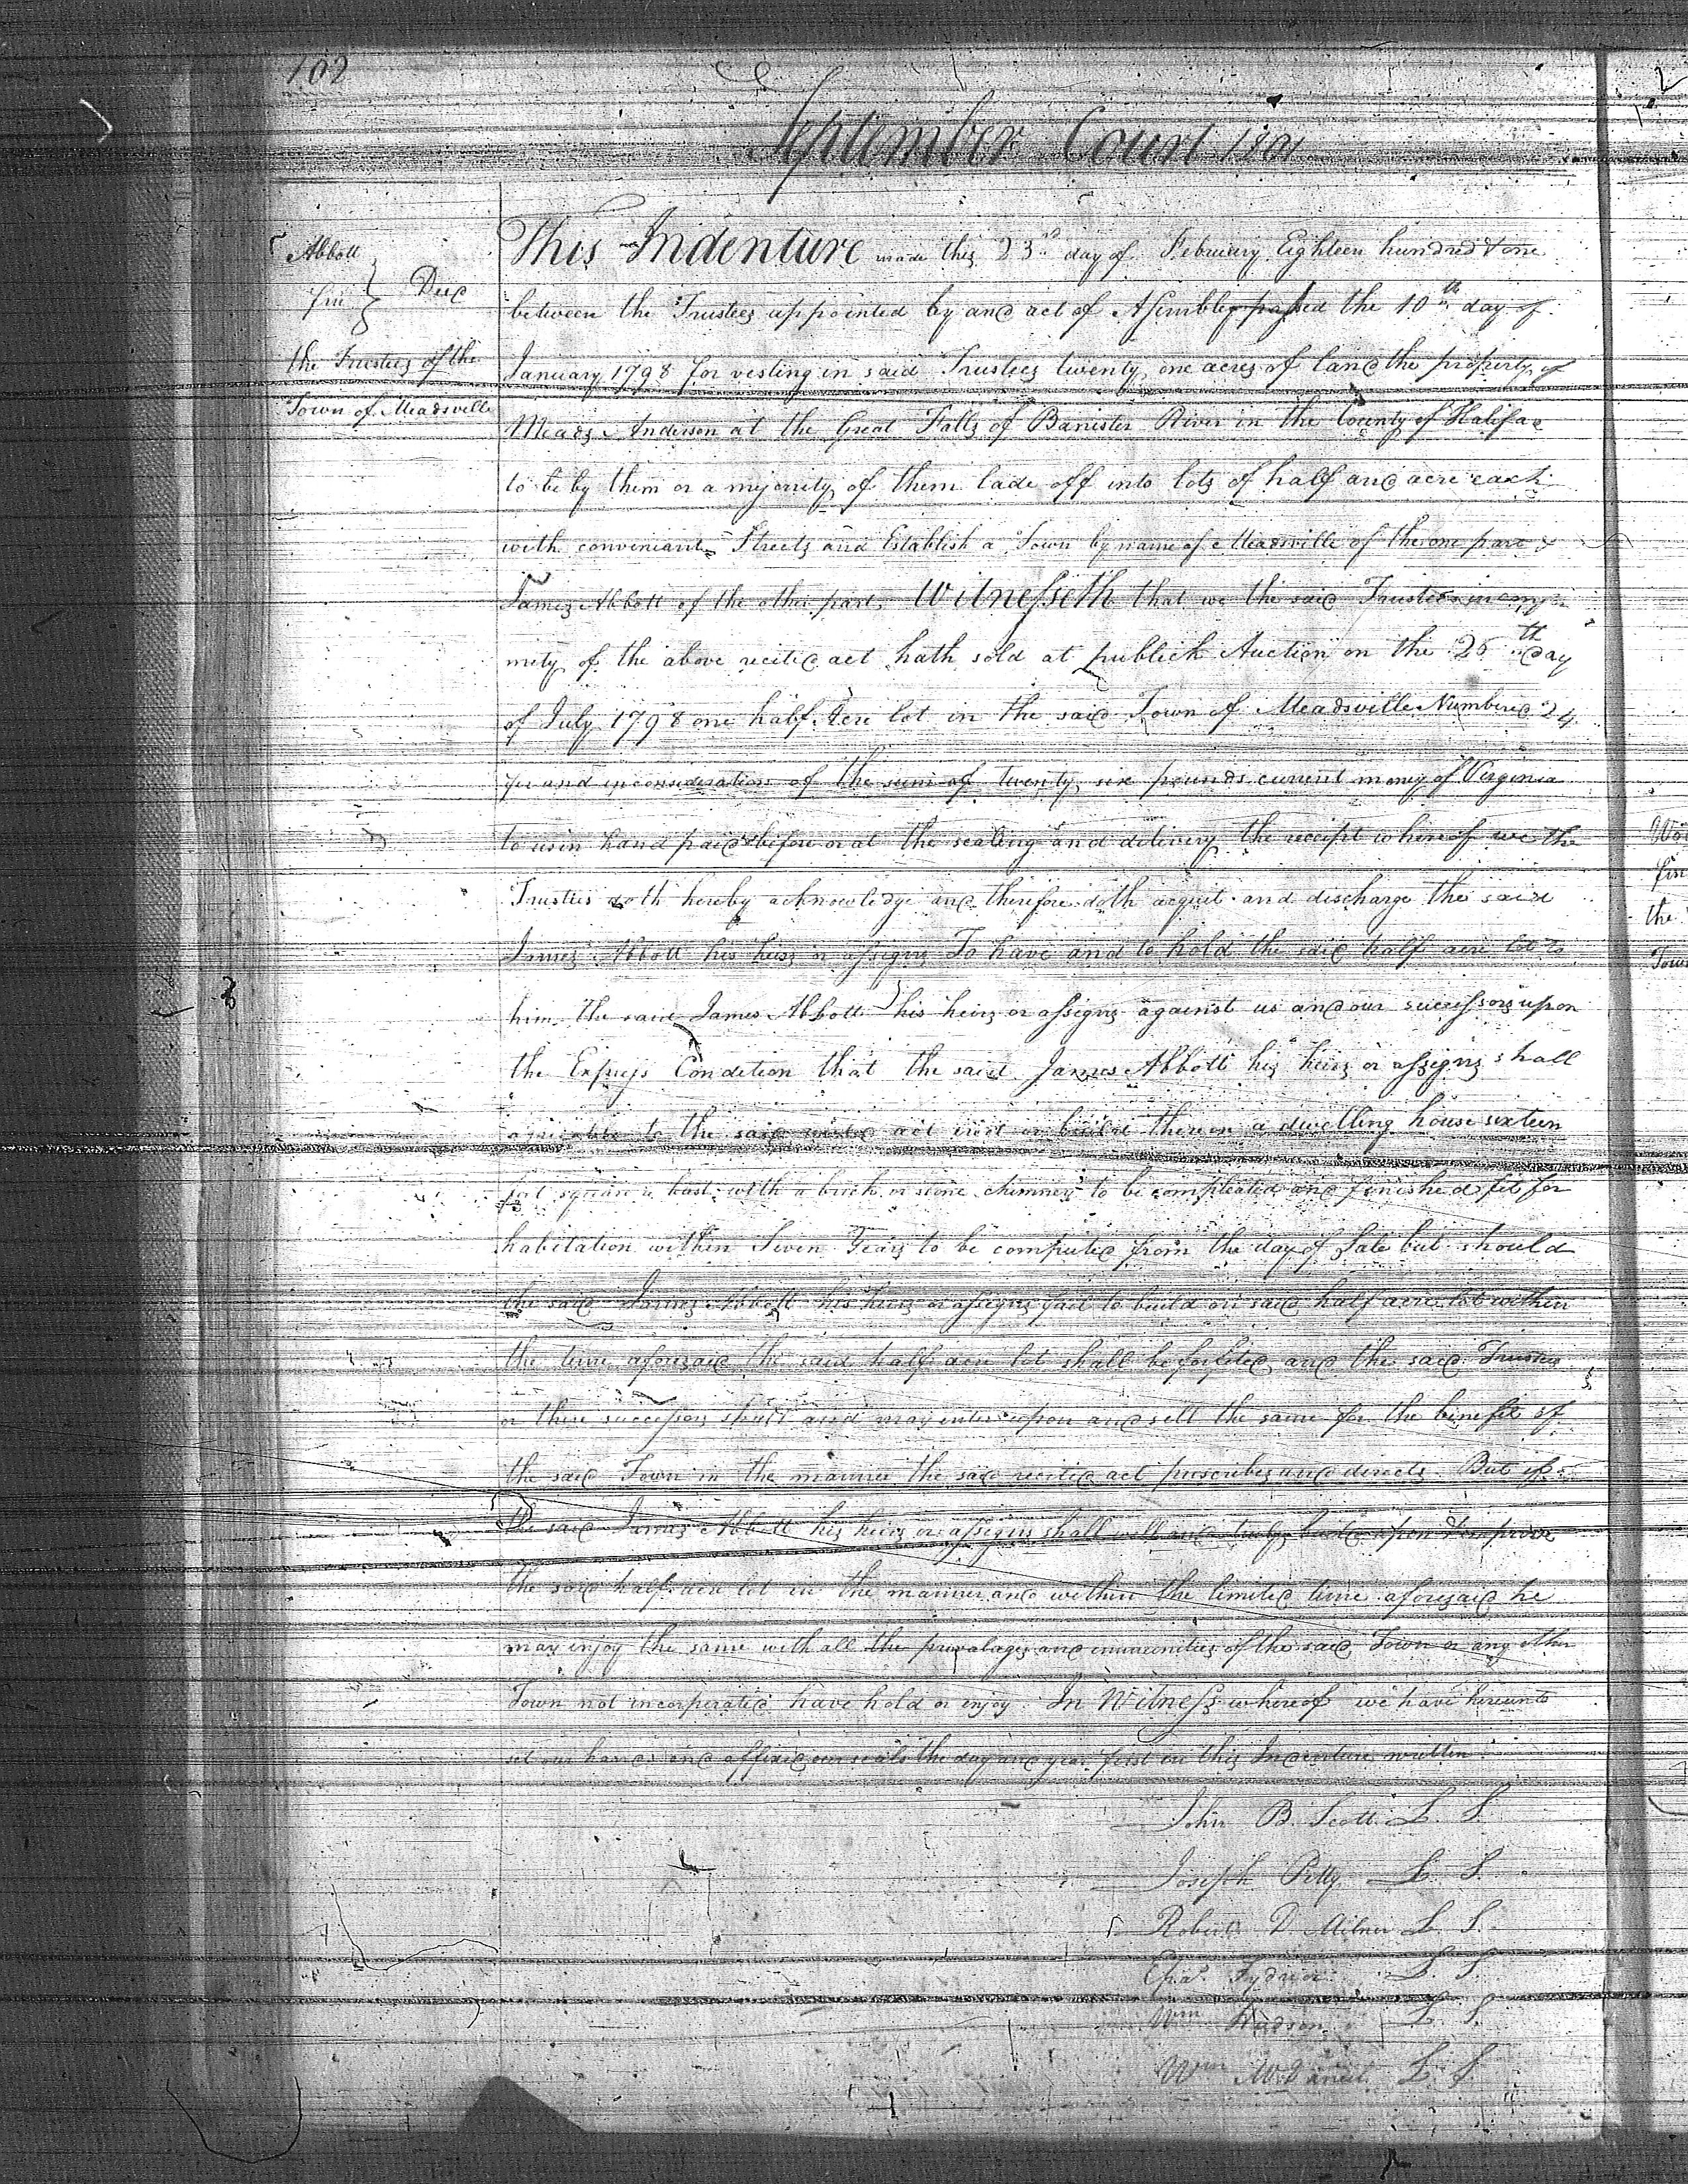 102
September Court 1801
Abbott
fm } Deed
the Trustees of the
Town of Meadsville
This Indenture made this 23rd day of February Eighteen hundred & one
between the Trustees appointed by and act of Assembly passed the 10th day of
January 1798 for vesting in said Trustees twenty one acres of land the property of
Meads Anderson at the Great Falls of Banister River in the County of Halifax
to be by them or a majority of them lade off into lots of half and acre each
with conveniant Streets and Establish a Town by name of Meadsville of the one part &
James Abbott of the other part, Witnesseth that we the said Trustees in
mity of the above recited act hath sold at publick Auction on the 26th day
of July 1798 one half Acre lot in the said Town of Meadsville Numbered 24
for and inconsideration of the sum of twenty six pounds current money of Virginia
to us in hand paid before or at the sealing and delivery the receipt whereof we the
Trusties doth hereby acknowledge and therefore doth acquit and discharge the said
James Abbott his heirs or assigns To have and to hold the said half acre lot to
him the said James Abbott his heirs or assigns against us and our successors upon
the Express Condition that the said James Abbott his heirs or assigns shall
agreeable to the said recited act erect or build thereon a dwelling house sixteen
feet square at least with a brick or stone chimney to be compleated and finished fit for
habitation within Seven Years to be computed from the day of Sale but should
the said James Abbott his heirs or assigns fail to build on said half acre lot within
the time aforesaid the said half acre lot shall be forfited and the said Trustees
or there successors shall and may enter upon and sell the same for the benefit of
the said Town in the manner the said recited act prescribes and directs. But if
the said James Abbott his heirs or assigns shall well and truly build upon & improve
the said half acre lot in the manner and within the limited time aforesaid he
may enjoy the same with all the privalages and immunities of the said Town or any other
Town not incorperated have hold or enjoy. In Witness whereof we have hereunto
set our hands and affixed our seals the day and year first in this Indenture written
John B. Scott L. S.
Joseph Petty L. S.
Robert D Milner L. S.
Chas. Fydnor L. S.
Wm Hudson L. S.
Wm McDaniel L. S.